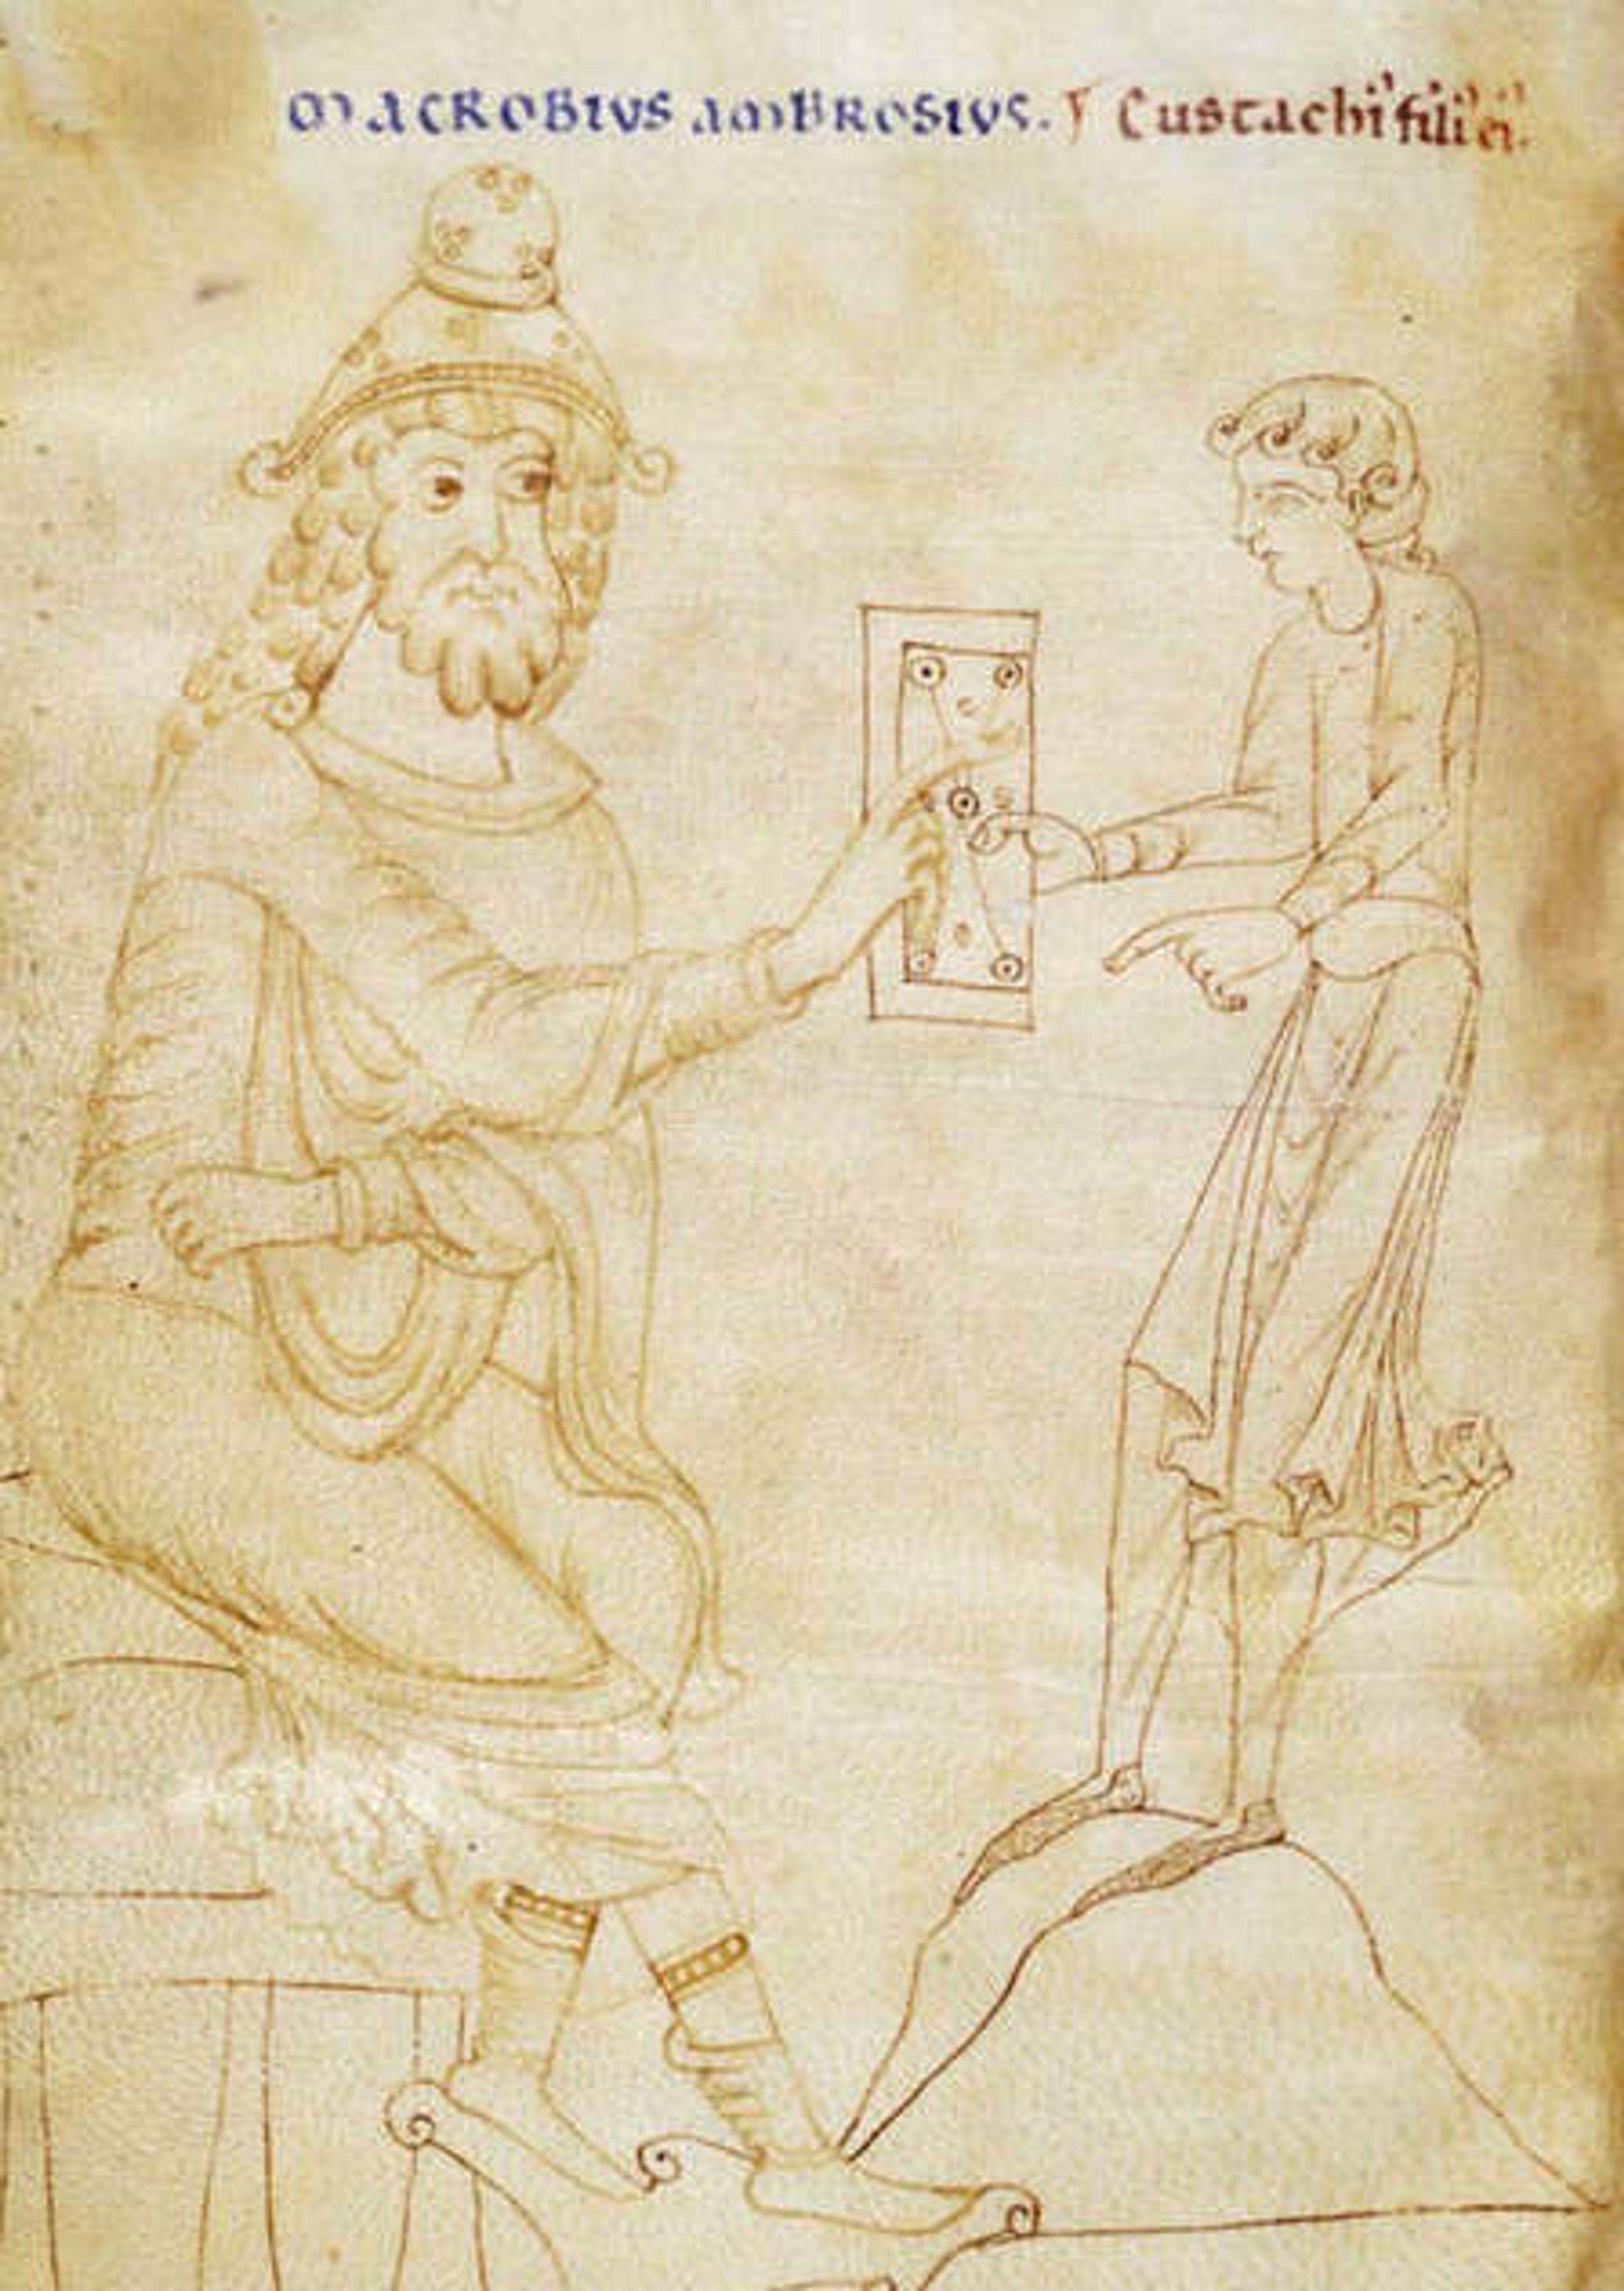 MACROBIVS AMBROSIVS. Eustachi' fili' ei'.